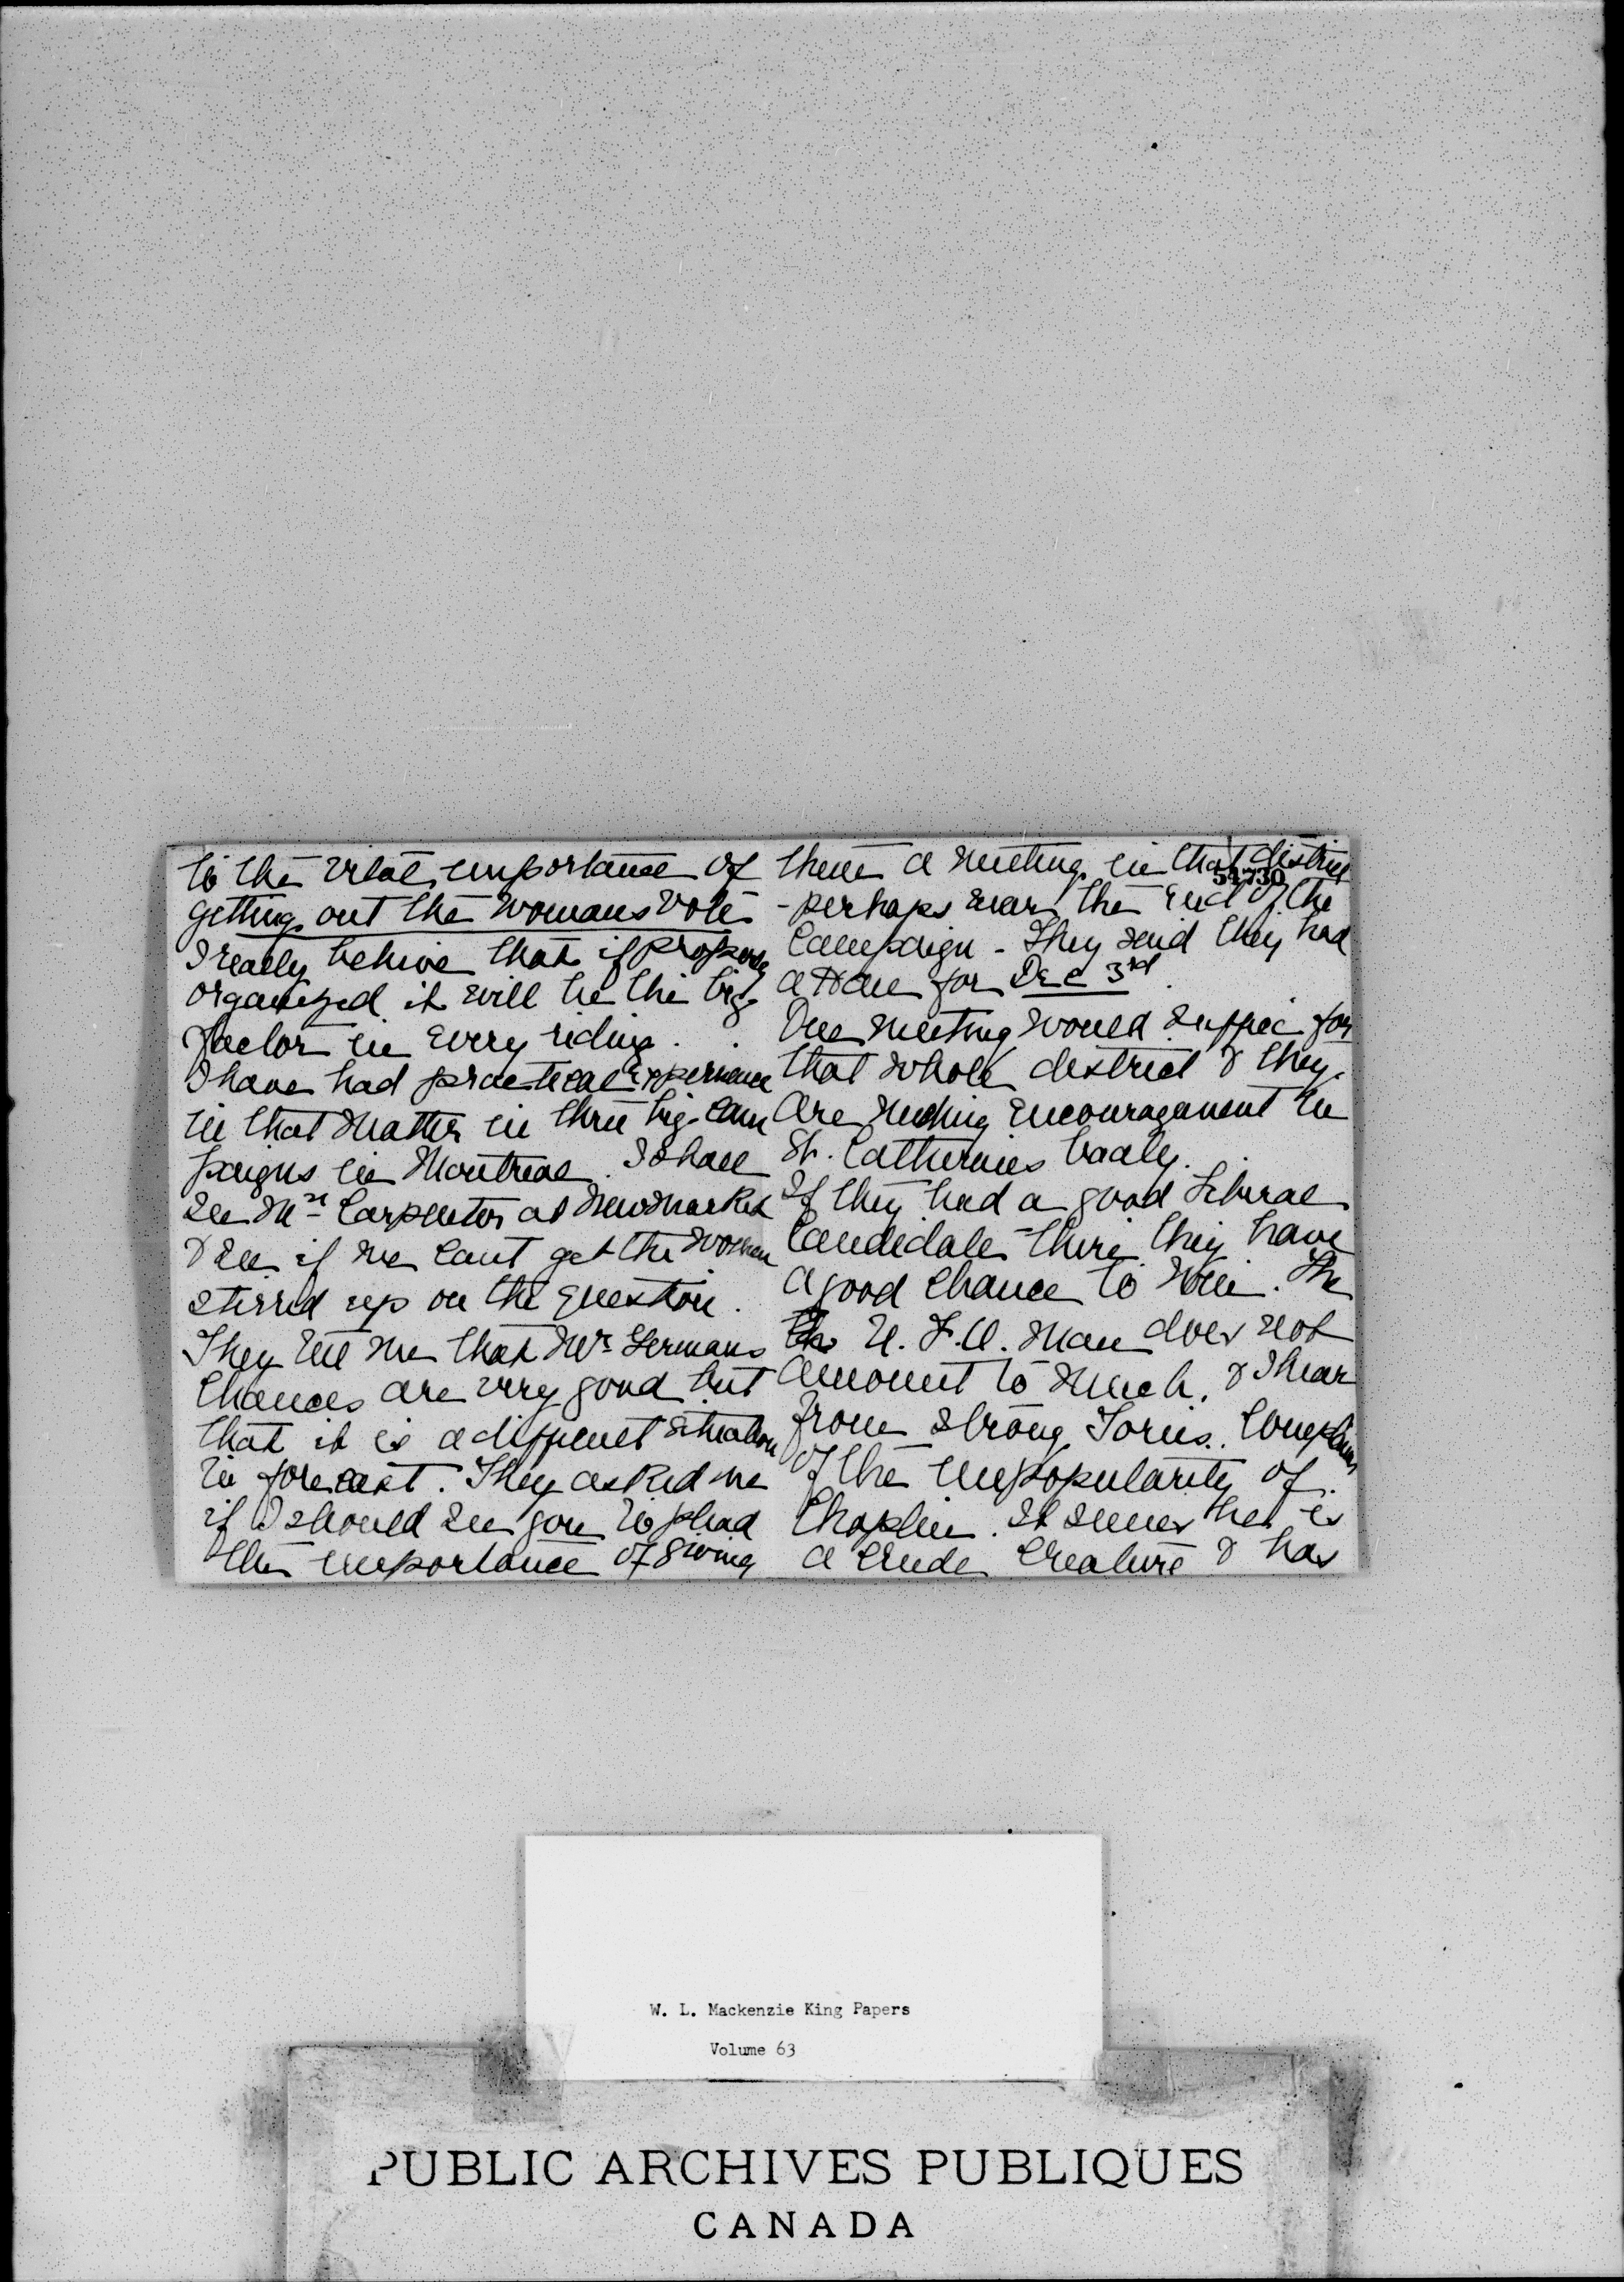 to the vital importance of
getting out the womans vote
I really believe that if properly
organized it will be the big
factor in every riding.
I have had practical experience
in that matter in three big cam
paigns in Montreal. I shall
see Mrs Carpenter at Newmarket
& see if we cant get the women
stirred up on the question.
They tell me that Mr Germans
chances are very good but
that it is a different situation
to forecast. They asked me
if I should see you to plead
the importance of giving
them a meeting in that district
54730
- perhaps near the end of the
Campaign - They said they had
a for Dec 3rd.
One meeting would suffice for
that whole district & they
are needing encouragement in
St. Catherines badly.
If they had a good Liberal
Candidate there they have
a good chance to win. The
the U. F. O. man does not
amount to much, & I hear
from strong Tories. Complaints
of the unpopularity of
Chaplin. It seems he is
a crude creature & has
W. L. Mackenzie King Papers
Volume 63
PUBLIC ARCHIVES PUBLIQUES
CANADA